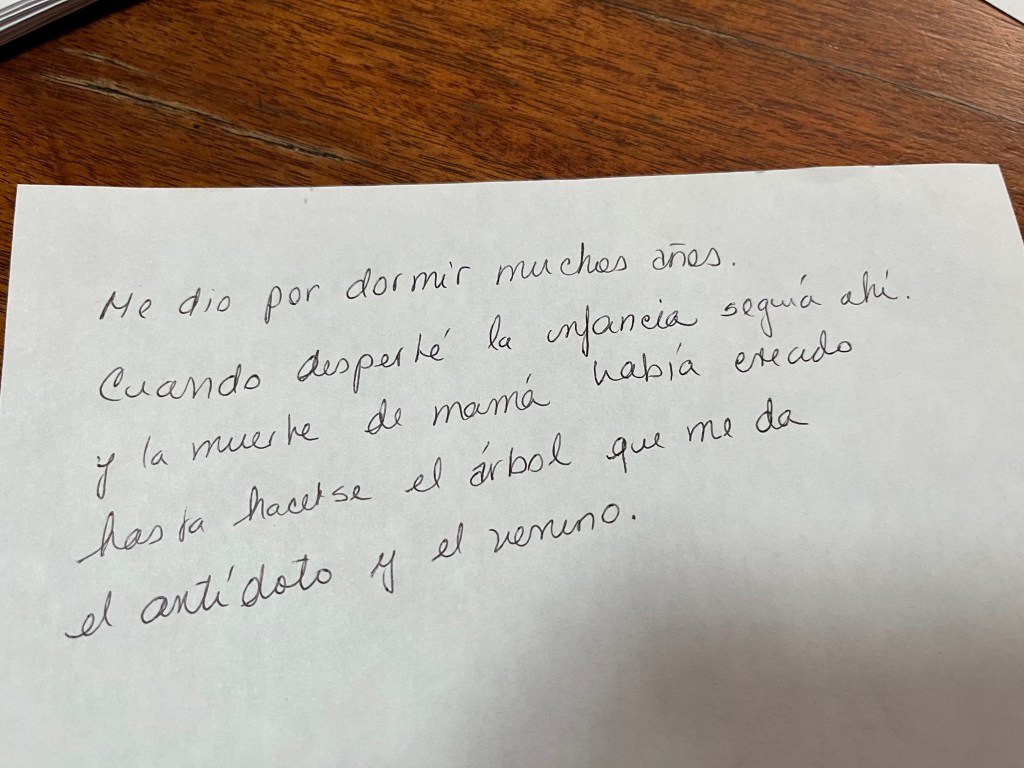 Me dio por dormir muchos años.
Cuando desperté la infancia seguía ahí.
y la muerte de mamá había crecido
hasta hacerse el árbol que me da
el antídoto y el veneno.